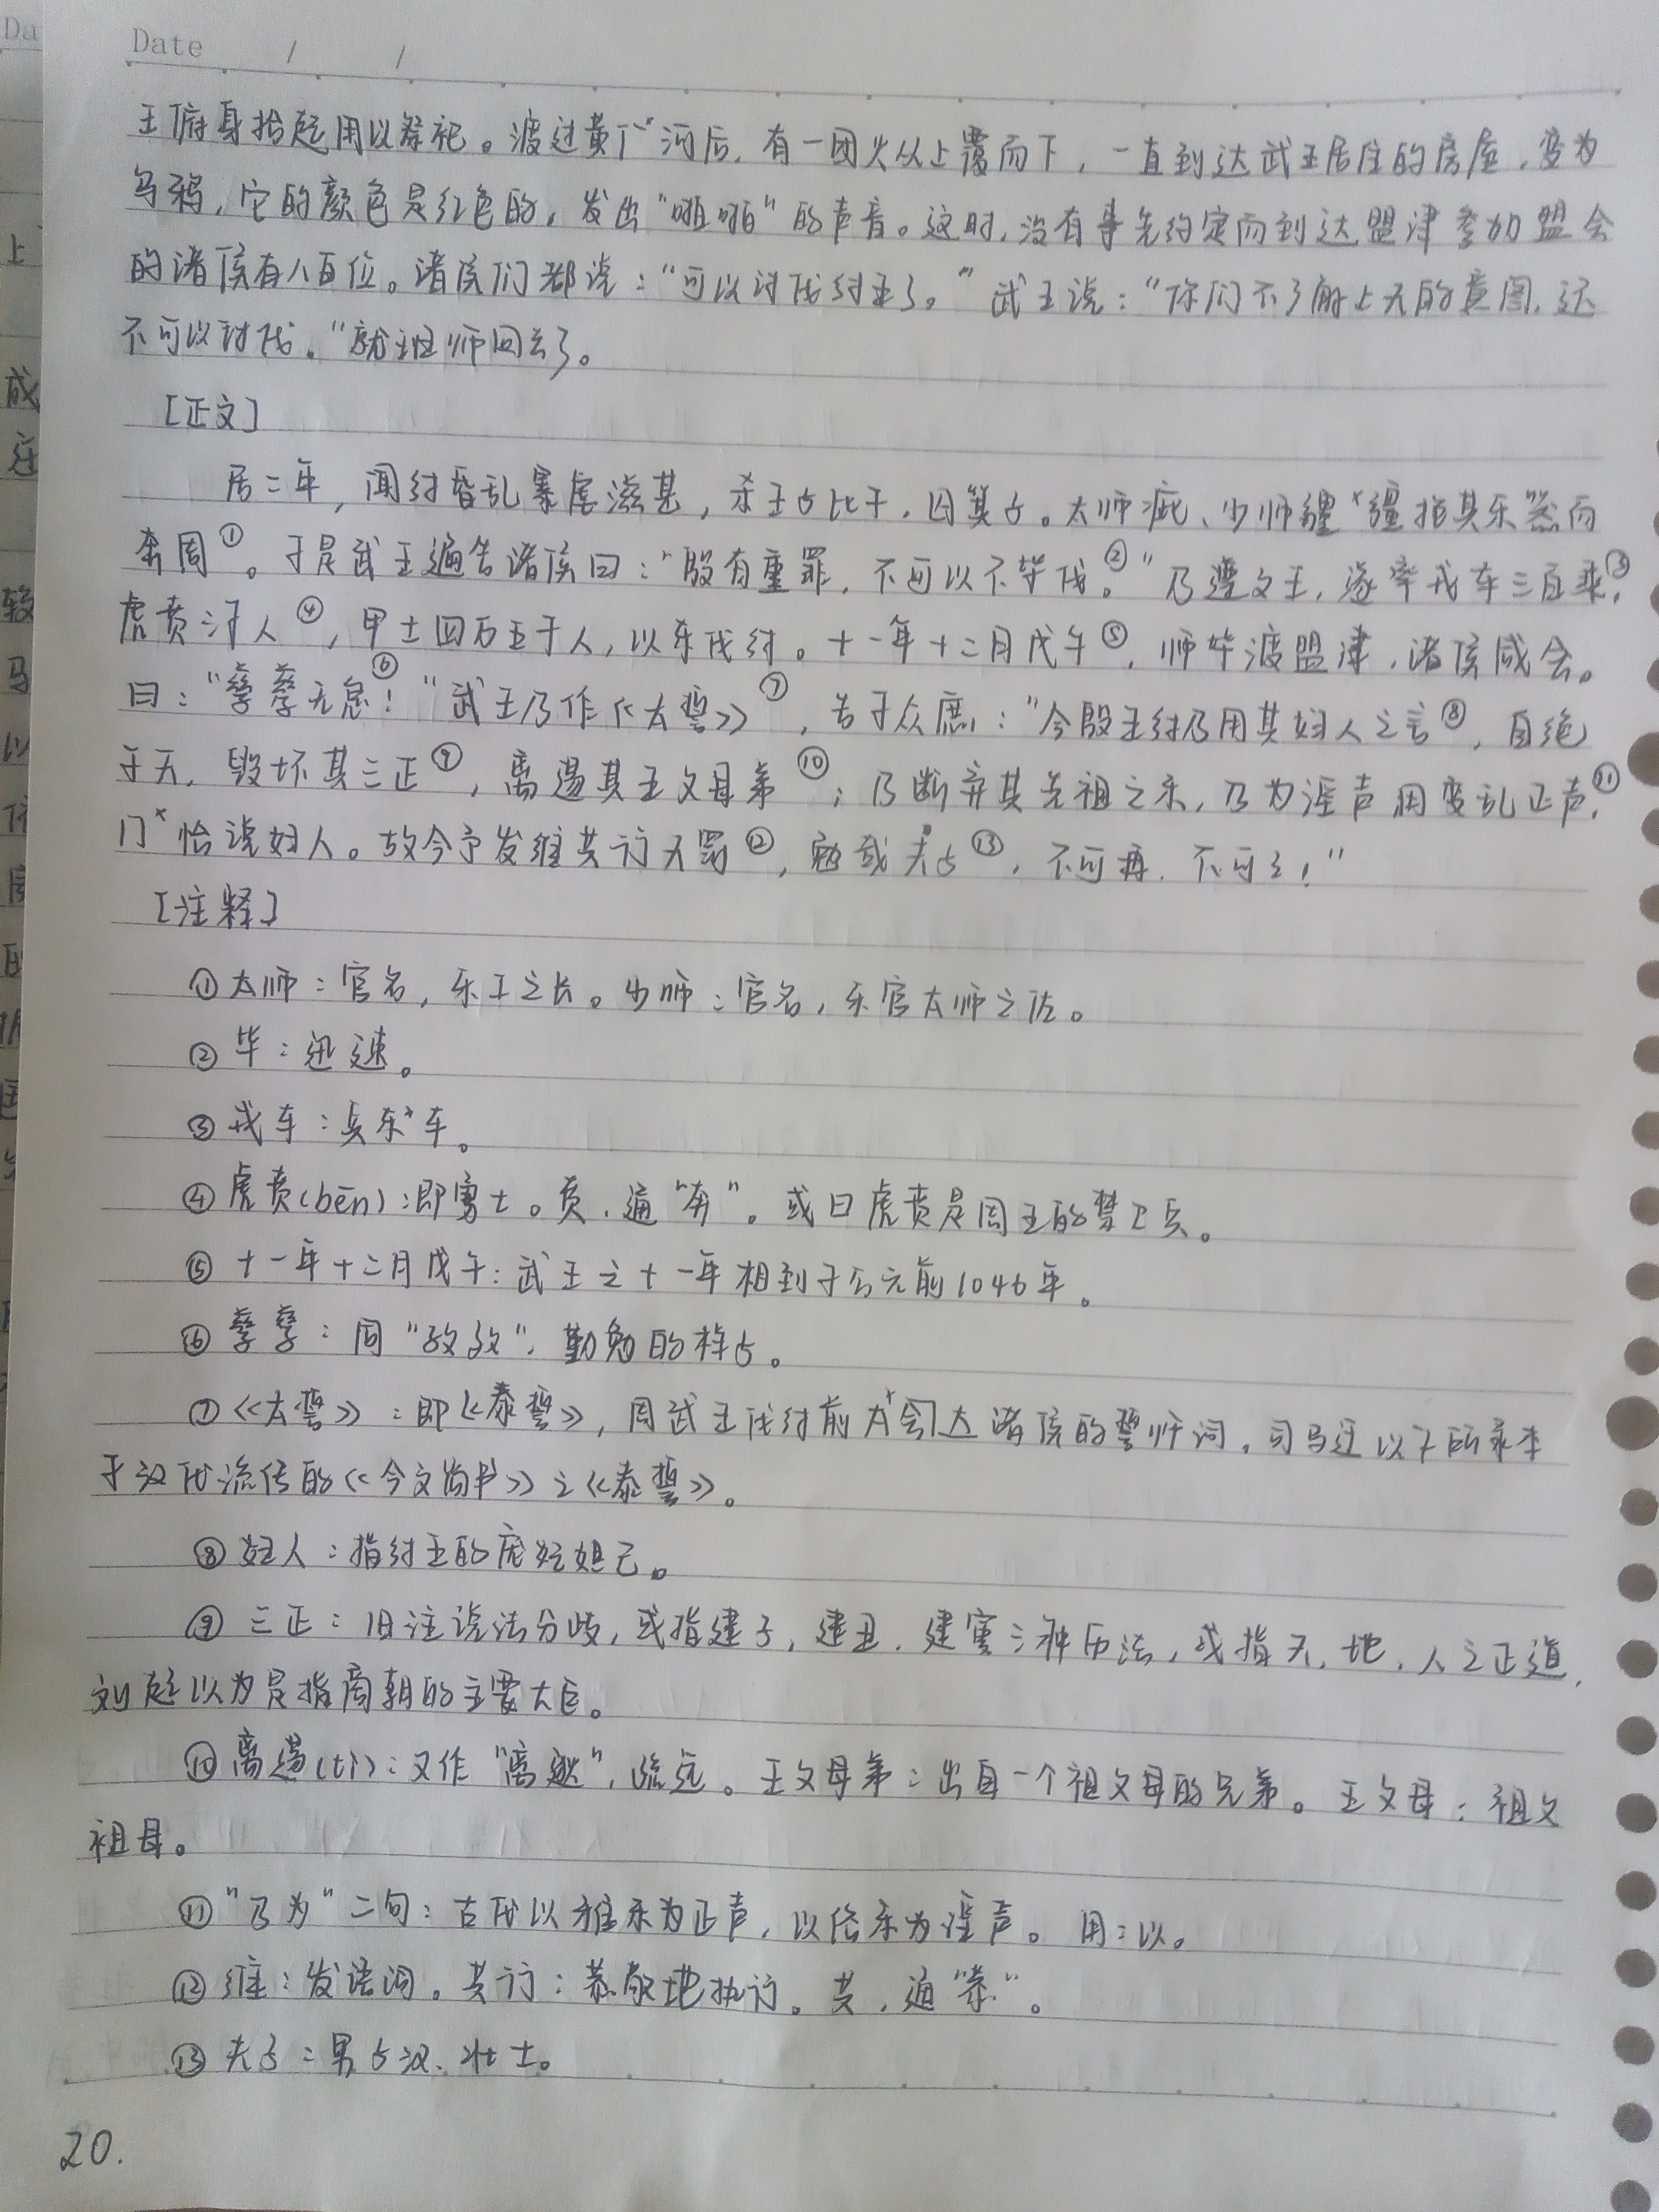 Date / /
王俯身拾起用以祭祀。渡过黄河后，有一团火从上覆而下，一直到达武王居住的房屋，变为
乌鸦，它的颜色是红色的，发出“啪啪”的声音。这时，没有事先约定而到达盟津参加盟会
的诸侯有八百位。诸侯们都说：“可以讨伐纣王了。”武王说：“你们不了解上天的意图，还
不可以讨伐。”就班师回去了。
[正文]
居二年，闻纣昏乱暴虐滋甚，杀王子比干，囚箕子。太师疵、少师彊抱其乐器而
奔周①。于是武王遍告诸侯曰：“殷有重罪，不可以不毕伐②。”乃遵文王，遂率戎车三百乘③，
虎贲三千人④，甲士四万五千人，以东伐纣。十一年十二月戊午⑤，师毕渡盟津，诸侯咸会。
曰：“孳孳无怠⑥！”武王乃作《太誓》⑦，告于众庶：“今殷王纣乃用其妇人之言⑧，自绝
于天，毁坏其三正⑨，离逷其王父母弟⑩；乃断弃其先祖之乐，乃为淫声用变乱正声⑪，
怡说妇人。故今予发维共行天罚⑫，勉哉夫子⑬，不可再，不可三！”
[注释]
①太师：官名，乐工之长。少师：官名，乐官太师之佐。
②毕：迅速。
③戎车：兵车。
④虎贲(bēn)：即勇士。贲，通“奔”。或曰虎贲是周王的禁卫兵。
⑤十一年十二月戊午：武王之十一年相到于公元前1046年。
⑥孳孳：同“孜孜”，勤勉的样子。
⑦《太誓》：即《泰誓》，周武王伐纣前大会诸侯的誓师词，司马迁以下所录本
于汉代流传的《今文尚书》之《泰誓》。
⑧妇人：指纣王的宠妃妲己。
⑨三正：旧注说法分歧，或指建子，建丑，建寅三种历法，或指天，地，人之正道，
刘起以为是指商朝的主要大臣。
⑩离逷(tì)：又作“离逖”，疏远。王父母弟：出自一个祖父母的兄弟。王父母：祖父
祖母。
⑪“乃为”二句：古代以雅乐为正声，以俗乐为淫声。用：以。
⑫维：发语词。共行：恭敬地执行。共，通“恭”。
⑬夫子：男子汉、壮士。
20.